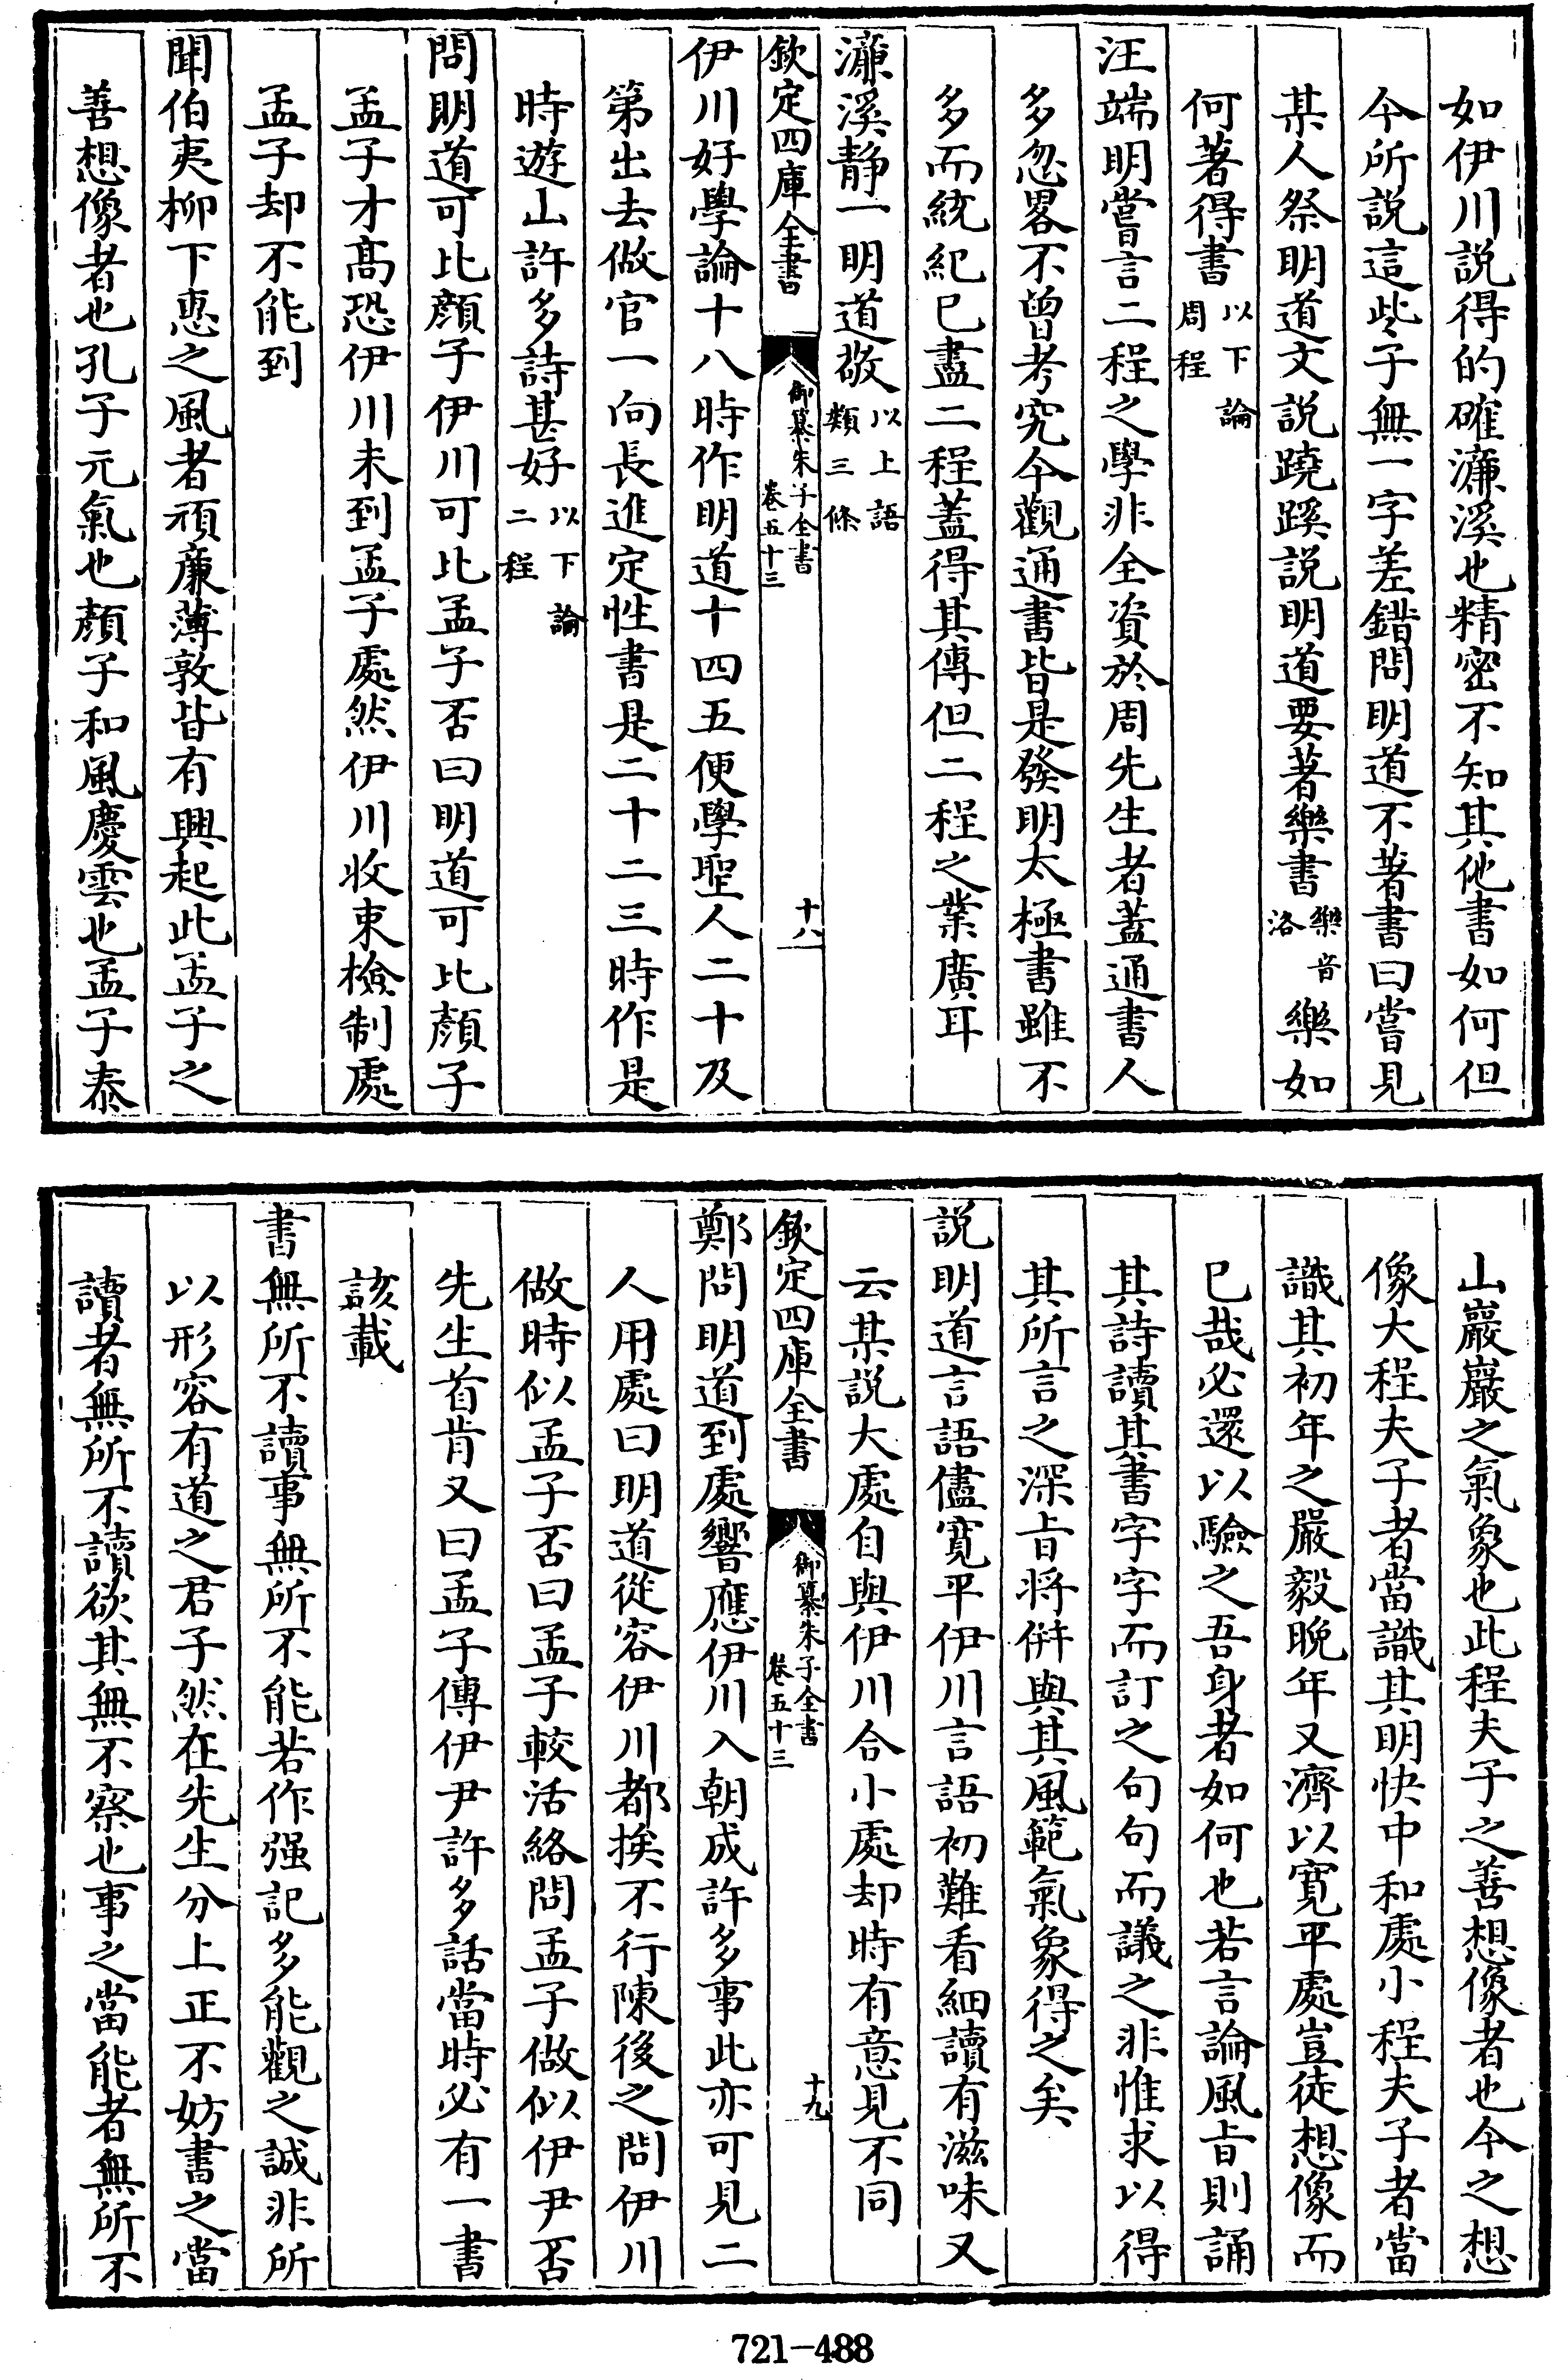 如伊川説得的確濂溪也精密不知其他書如何但
今所説這些子無一字差錯問明道不著書曰嘗見
某人祭明道文説蹺蹊説明道要著樂書樂音洛樂如
何著得書以下論周程
汪端明嘗言二程之學非全資於周先生者蓋通書人
多忽畧不曽考究今觀通書皆是發明太極書雖不
多而統紀已盡二程蓋得其傳但二程之業廣耳
濂溪静一明道敬以上語類三條
欽定四庫全書
御纂朱子全書
卷五十三
十八
伊川好學論十八時作明道十四五便學聖人二十及
第出去做官一向長進定性書是二十二三時作是
時遊山許多詩甚好以下論二程
問明道可比顔子伊川可比孟子否曰明道可比顔子
孟子才髙恐伊川未到孟子處然伊川收束檢制處
孟子却不能到
聞伯夷柳下惠之風者頑廉薄敦皆有興起此孟子之
善想像者也孔子元氣也顔子和風慶雲也孟子泰
山巖巖之氣象也此程夫子之善想像者也今之想
像大程夫子者當識其明快中和處小程夫子者當
識其初年之嚴毅晚年又濟以寛平處豈徒想像而
已哉必還以驗之吾身者如何也若言論風㫖則誦
其詩讀其書字字而訂之句句而議之非惟求以得
其所言之深㫖將併與其風範氣象得之矣
説明道言語儘寛平伊川言語初難看細讀有滋味又
云某説大處自與伊川合小處却時有意見不同
欽定四庫全書
御纂朱子全書
卷五十三
十九
鄭問明道到處響應伊川入朝成許多事此亦可見二
人用處曰明道從容伊川都挨不行陳後之問伊川
做時似孟子否曰孟子較活絡問孟子做似伊尹否
先生首肯又曰孟子傳伊尹許多話當時必有一書
該載
書無所不讀事無所不能若作强記多能觀之誠非所
以形容有道之君子然在先生分上正不妨書之當
讀者無所不讀欲其無不察也事之當能者無所不
721-488